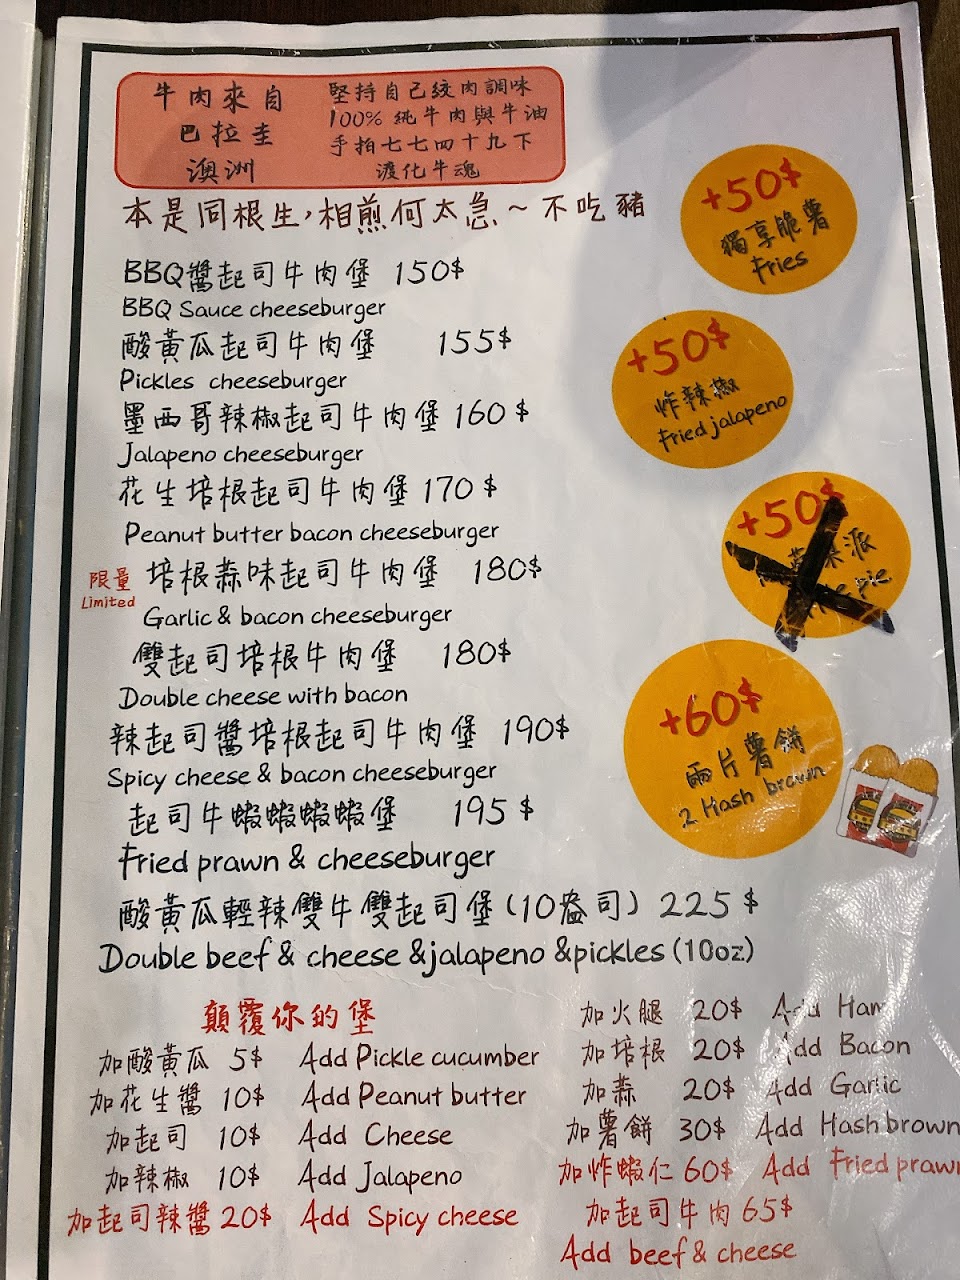 牛肉來自
巴拉圭
澳洲
堅持自己絞肉調味
100% 純牛肉與牛油
手拍七七四十九下
渡化牛魂
本是同根生，相煎何太急～不吃豬
BBQ醬起司牛肉堡 150$
BBQ Sauce cheeseburger
酸黃瓜起司牛肉堡 155$
Pickles cheeseburger
墨西哥辣椒起司牛肉堡 160$
Jalapeno cheeseburger
花生培根起司牛肉堡 170$
Peanut butter bacon cheeseburger
限量
Limited
培根蒜味起司牛肉堡 180$
Garlic & bacon cheeseburger
雙起司培根牛肉堡 180$
Double cheese with bacon
辣起司醬培根起司牛肉堡 190$
Spicy cheese & bacon cheeseburger
起司牛蝦蝦蝦蝦堡 195$
Fried prawn & cheeseburger
酸黃瓜輕辣雙牛雙起司堡(10盎司) 225$
Double beef & cheese &jalapeno &pickles (10oz)
+50$
獨享脆薯
Fries
+50$
炸辣椒
Fried jalapeno
+50$
派
pie
+60$
兩片薯餅
2 Hash brown
顛覆你的堡
加酸黃瓜 5$ Add Pickle cucumber
加花生醬 10$ Add Peanut butter
加起司 10$ Add Cheese
加辣椒 10$ Add Jalapeno
加起司辣醬 20$ Add Spicy cheese
加火腿 20$ Add Ham
加培根 20$ Add Bacon
加蒜 20$ Add Garlic
加薯餅 30$ Add Hash brown
加炸蝦仁 60$ Add Fried prawn
加起司牛肉 65$
Add beef & cheese